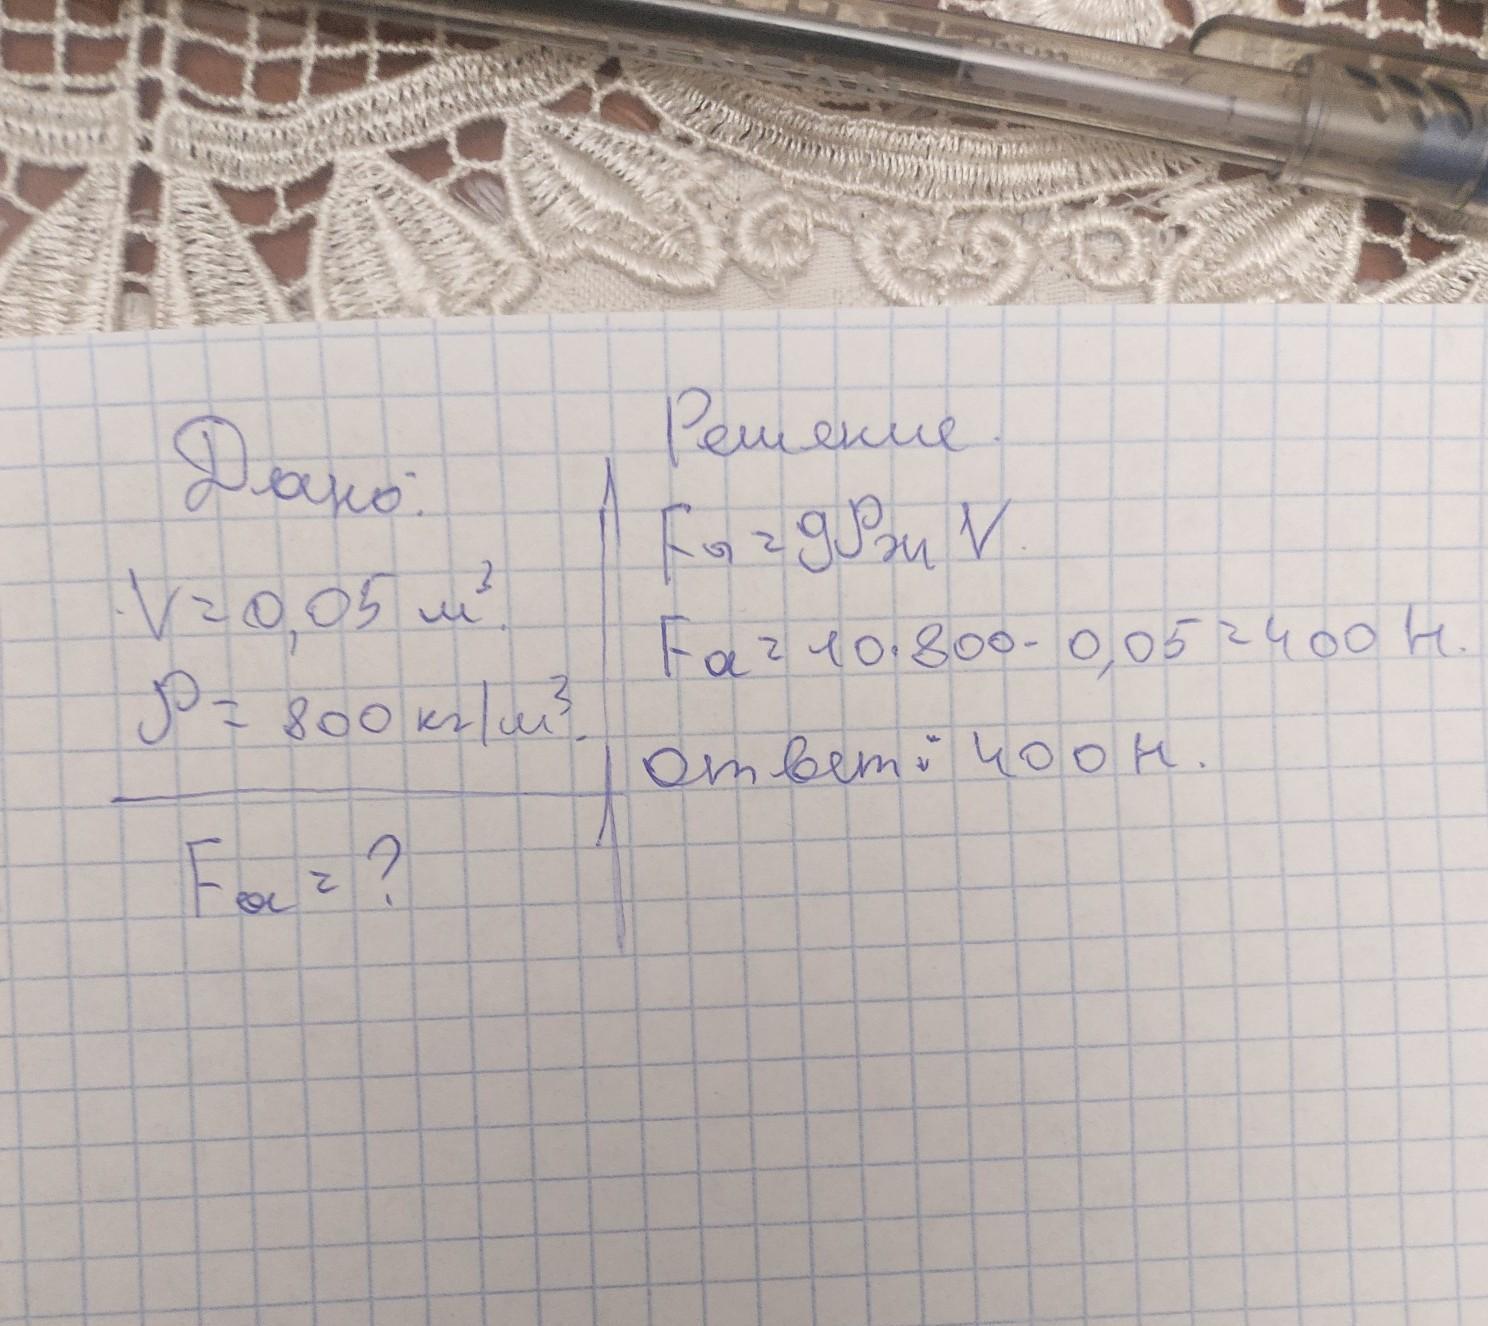 Дано:
V = 0,05 м³.
ρ = 800 кг/м³.
Fа = ?
Решение.
Fа = gρж V.
Fа = 10·800·0,05 = 400 Н.
Ответ: 400 Н.